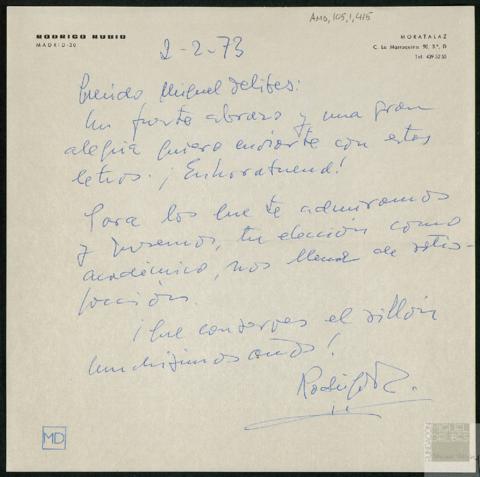 AMD, 105, 1, 415
RODRIGO RUBIO
MADRID-30
MORATALAZ
C. La Marroquina 90, 3.º, D
Tel. 439 52 55
2-2-73
Querido Miguel Delibes:
Un fuerte abrazo y una gran
alegría quiero enviarte con estas
letras. ¡Enhorabuena!
Para los que te admiramos
y queremos, tu elección como
académico, nos llena de satis-
facción.
¡Que conserves el sillón
muchísimos años!
Rodrigo R.
MD
FUNDACIÓN
MIGUEL
DELIBES